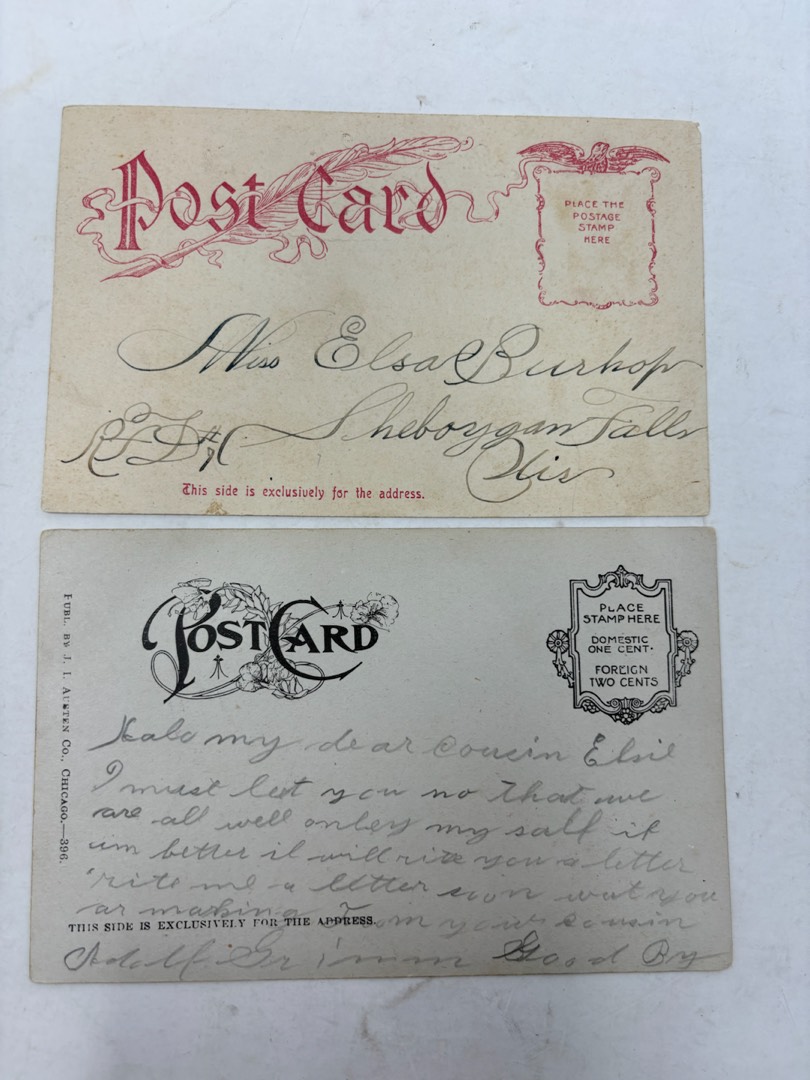 Post Card
PLACE THE
POSTAGE
STAMP
HERE
Miss Elsa Burkop
Sheboygan Falls
RFD #
Wis
This side is exclusively for the address.
POST CARD
PLACE
STAMP HERE
DOMESTIC
ONE CENT.
FOREIGN
TWO CENTS
PUBL. BY J. I. AUSTEN CO., CHICAGO.—396.
Halo my dear cousin Elsie
I must let you no that we
are all well onley my salf if
um better il will rite you a letter
rite me a letter soon wat you
ar making From your cousin
THIS SIDE IS EXCLUSIVELY FOR THE ADDRESS.
Adolf Grimm Good By